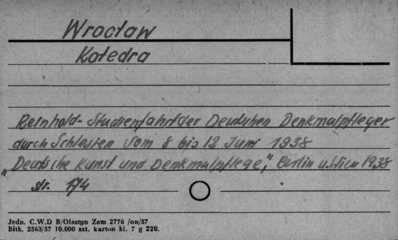 Wrocław
Katedra
Reinhold - Studienfahrt der Deutschen Denkmalpfleger
durch Schlesien vom 8 bis 12 Juni 1938
"Deutsche Kunst und Denkmalpflege", Berlin u. Wien 1938
str. 174
Jedn. C.W.D B/Olsztyn Zam 2776 /on/57
Bltk. 2563/57 10.000 szt. karton kl. 7 g 220.